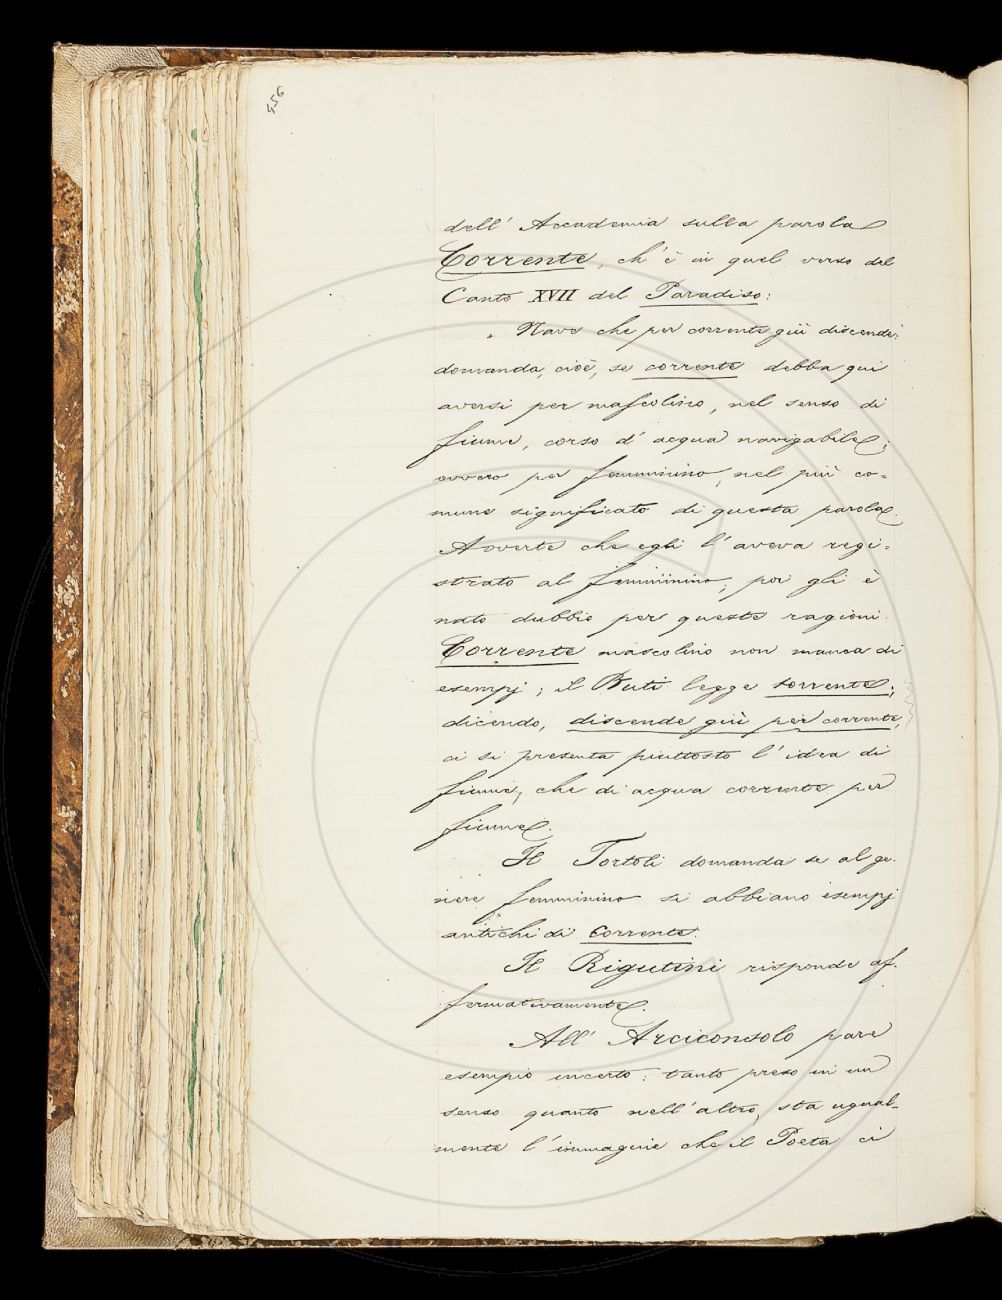 456
dell' Accademia sulla parola
Corrente, ch'è in quel verso del
Canto XVII del Paradiso:
Nave che per corrente giù discende:
domanda, cioè, se corrente debba qui
aversi per mascolino, nel senso di
fiume, corso d'acqua navigabile;
ovvero per femminino, nel più co-
mune significato di questa parola.
Avverte che egli l'aveva regi-
strato al femminino; poi gli è
nato dubbio per queste ragioni.
Corrente mascolino non manca di
esempj; il Buti legge torrente;
dicendo, discende giù per corrente,
ci si presenta piuttosto l'idea di
fiume, che di acqua corrente per
fiume.
Il Tortoli domanda se al ge-
nere femminino si abbiano esempj
antichi di Corrente.
Il Rigutini risponde af-
fermativamente.
All' Arciconsolo pare
esempio incerto: tanto preso in un
senso quanto nell'altro, sta ugual-
mente l'immagine che il Poeta ci